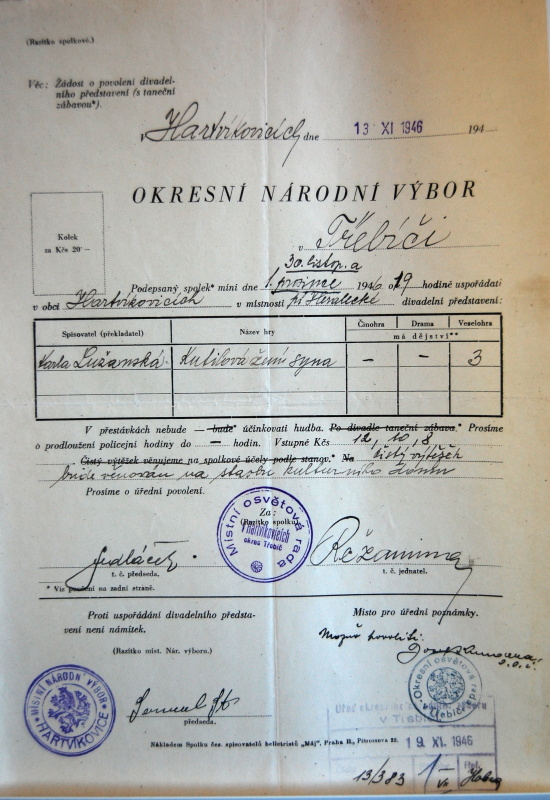 (Razítko spolkové.)
Věc: Žádost o povolení divadel-
ního představení (s taneční
zábavou*).
V Hartvíkovicích dne 13 XI 1946 194
OKRESNÍ NÁRODNÍ VÝBOR
Kolek
za Kčs 20–
v Třebíči
30. listop. a
Podepsaný spolek* míní dne 1. prosince 1946 o 19 hodině uspořádati
v obci Hartvíkovicích v místnosti divadelní představení:
Spisovatel (překladatel) Název hry Činohra Drama Veselohra
má dějství**
Karla Lužanská Kutilová žení syna – – 3
V přestávkách nebude — bude* účinkovati hudba. Po divadle taneční zábava.* Prosíme
o prodloužení policejní hodiny do — hodin. Vstupné Kčs 12, 10, 8
Čistý výtěžek věnujeme na spolkové účely podle stanov.* Na čistý výtěžek
bude věnován na stavbu kulturního domu
Prosíme o úřední povolení.
Za:
(Razítko spolku)
Místní osvětová rada
v Hartvíkovicích
okres Třebíč
Jedláček
t. č. předseda. t. č. jednatel.
* Viz poučení na zadní straně.
Proti uspořádání divadelního předsta-
vení není námitek.
(Razítko míst. Nár. výboru.)
Místo pro úřední poznámky.
Okresní osvětová rada
Třebíč
MÍSTNÍ NÁRODNÍ VÝBOR
HARTVÍKOVICE
předseda.
v Třebíči
19. XI. 1946
Nákladem Spolku čes. spisovatelů beletristů „MÁJ", Praha II., Pštrossova 22.
13/383 1